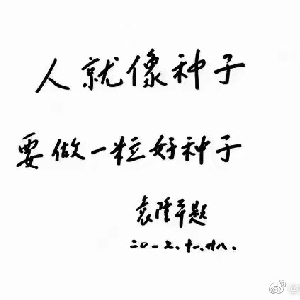 人就像种子
要做一粒好种子
袁隆平题
二〇一二.十一.廿八.